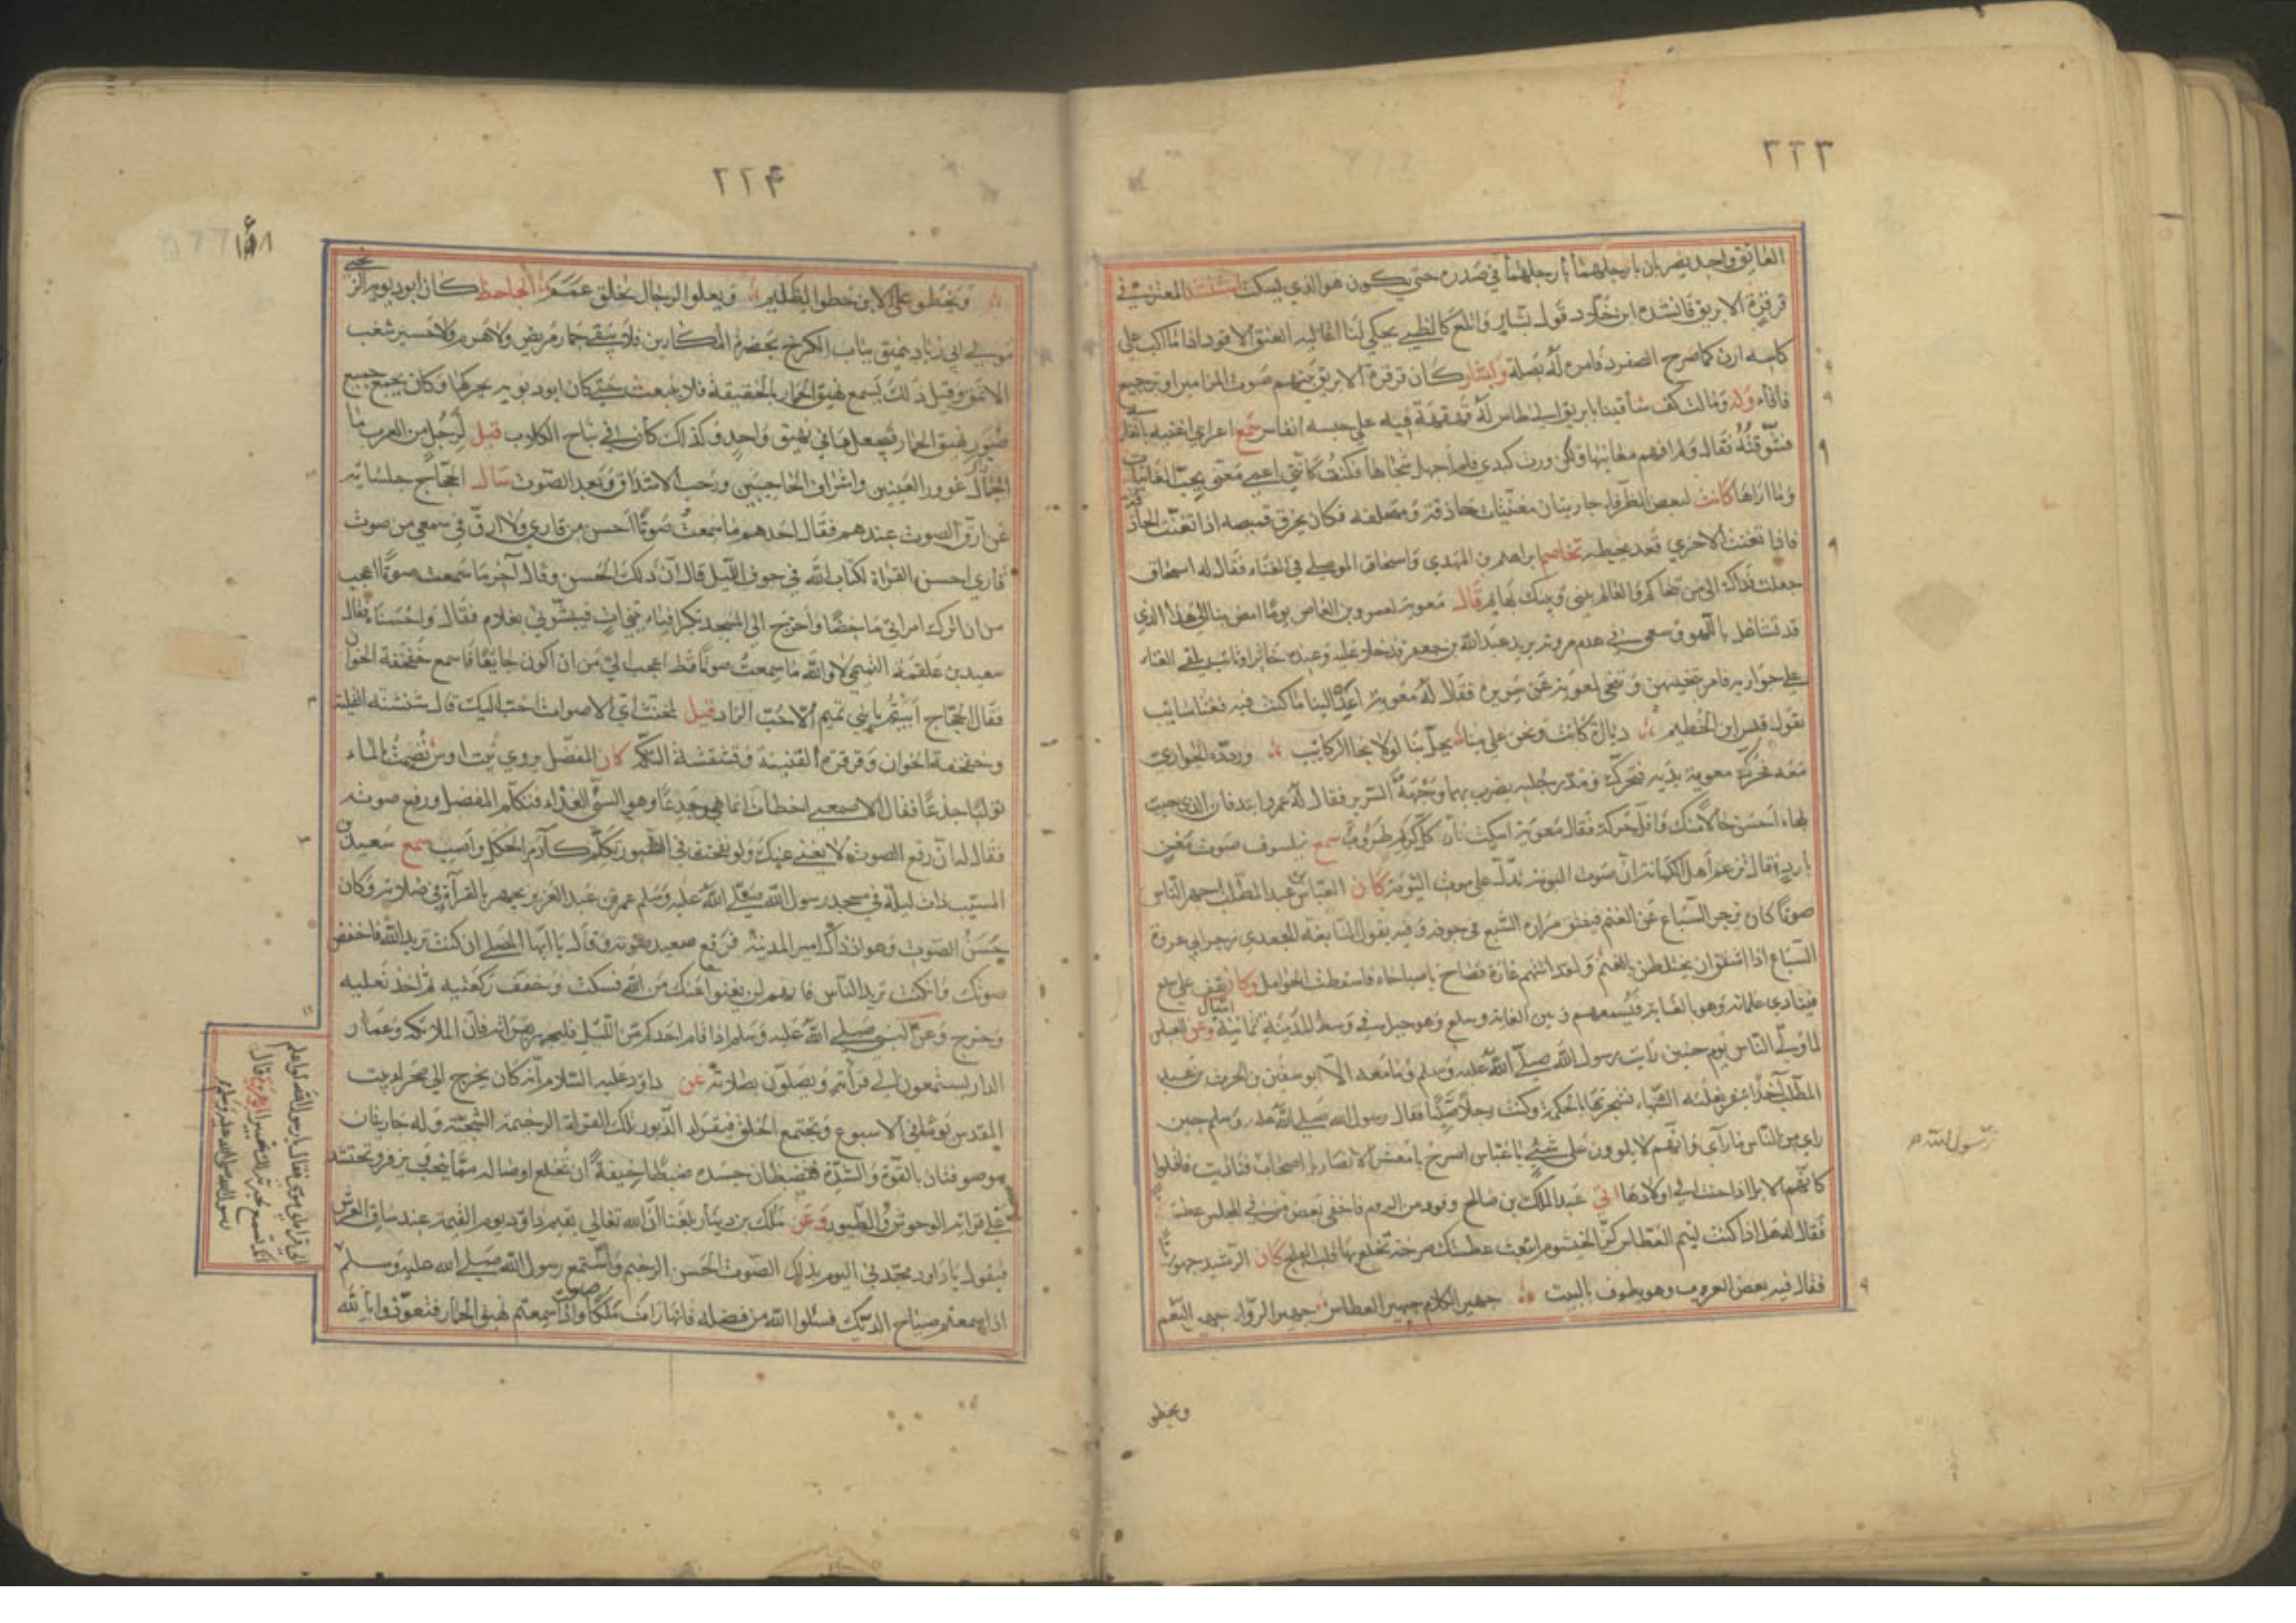 ٢٢٣
العاتق واحد يضربان بارجلهما بارجلهما في صدره حتى يكون هو الذي يسكت المعتز في
قرقرة الابريق فانشده ابن قول بشار كالظبي يحكي لنا العنق الاقود اذا ما اكب على
كاسه ارن كما صرح الصفرد فامر له بصلة كان قرقرة الابريق بينهم صوت المزامير او ترجيع
فأفاء وله وما لت كف ساقينا بابريق الى طاس له قهقهة فيه على حبسه انفاس سمع اعرابي
فشوقته فقال ولم افهم معانيها ولكن ورت كبدي فلم اجهل شجاها فكنت كأنني اعمى معنى يحب الغانيات
وما اراها كانت لبعض الظرفاء جاريتان مغنيتان حاذقة ومتخلفة فكان يخرق قميصه اذا تغنت الحاذقة
فاذا تغنت الاخرى قعد يخيطه تخاصم ابراهيم بن المهدي واسحاق الموصلي في الغناء فقال له اسحاق
جعلت فداك الى من نتحاكم والعالم بيني وبينك بهايم قال معوية لعمرو بن العاص يوما امض بنا الى هذا الذي
قد تشاغل باللهو وسعى في هدم مروته يريد عبد الله بن جعفر فدخلا عليه وعنده يلقي الغناء
على جواريه فامر بتنحيتهن وتنحى لمعوية عن سريره فقال له معوية اعد الينا ما كنت فيه فغنا سايب
بقول قيس ابن الخطيم ديار التي كانت ونحن على منا تحل بنا لولا نجا الركايب وردده الجواري
معه فحرك معوية يديه فتحرك ومد رجليه يضرب بهما وجه السرير فقال له عمرو اتئد فان الذي جيت
لحاه احسن حالا منك واقل حركة فقال معوية اسكت فان كل كريم طروب سمع فيلسوف صوت مغن
بارد فقال يزعم اهل الكهانة ان صوت البومة يدل على موت كان العباس بن عبد المطلب اجهر الناس
صوتا كان يزجر السباع عن الغنم فيفتق مرارة السبع في جوفه وفيه يقول النابغة الجعدي زجر ابي عروة
السباع اذا اشفق ان يختلطن بالغنم ولقد اتتهم غارة فصاح يا صباحاه فاسقطت الحوامل وكان يقف على سلع
فينادي غلمانه وهو بالغابة فيسمعهم وبين الغابة وسلع وهو جبل في وسط المدينة ثمانية اميال وعن العباس
لما ولى الناس يوم حنين رايت رسول الله صلى الله عليه وسلم وما معه الا ابو سفين بن الحرث بن عبد
المطلب آخذا بثغر بغلته الشهباء فشجرتها بالحكمة وكنت رجلا صيتا فقال رسول الله صلى الله عليه وسلم حين
راى من الناس ما رآى وانهم لا يلوون على شيء يا عباس اصرخ يا معشر الانصار يا اصحاب فناديت فاقبلوا
كأنهم الابل اذا حنت الى اولادها اتى عبد الملك بن صالح وفود من الروم فاخفى بعض من في المجلس عطسة
فقال له هلا اذا كنت لئيم العطاس كز الخيشوم اتبعت عطستك صرخة تخلع بها قلب العلج كان الرشيد جهوريا
فقال فيه بعض العروب وهو يطوف بالبيت جهير الكلام جهير العطاس جهير الرواء جهير النغم
رسول الله
ويخطو
٢٢۴
ويخطو على الاين خطوا الظليم ويعلوا الرجال بخلق عمم الجاحظ كان ابو دبوبة الزنجي
مولى ال زياد ينهق بباب الكرخ بحضرة المكارين فلا يبقى حمار مريض ولا هرم ولا حسير شغب
الا نهق وقبل ذلك يسمع نهيق الحمار بالحقيقة فلا يبعث حتى كان ابو دبوبة يحركها وكان يجمع جميع
صور نهيق الحمار فيجعلها في نهيق واحد وكذلك كان في نباح الكلاب قيل لرجل من العرب ما
الجمال غوور العينين واشراف الحاجبين ورحب الاشداق وبعد الصوت سال الحجاج جلسايه
عن ارق الصوت عندهم فقال احدهم ما سمعت صوتا احسن من قاري ولا ارق في سمعي من صوت
قاري احسن القراة لكتاب الله في جوف الليل قال ان ذلك الحسن وقال آخر ما سمعت صوتا اعجب
من ان اترك امراتي ماخضا واخرج الى المسجد بكرا فياتيني آت فيبشرني بغلام فقال واحسناه فقال
سعيد بن علقمة التميمي لا والله ما سمعت صوتا قط اعجب الي من ان اكون جايعا فاسمع خفخفة الخوان
فقال الحجاج ابيتم يا بني تميم الا حب الزاد قيل لمخنث اي الاصوات احب اليك قال نشنشة القلية
وخفخفة الخوان وقرقرة القنينة وقشقشة التكك كان المفضل يروي بيت اوس تصمت بالماء
تولبا جذعا فقال الاصمعي اخطات انما هي جدعا وهو السيئ الغذاء فتكلم المفضل ورفع صوته
فقال لما ان رفع الصوت لا يغني عنك ولو نفخت في الشبور تكلم كلام الحكل واصب سمع سعيد بن
المسيب ذات ليلة في مسجد رسول الله صلى الله عليه وسلم عمر بن عبد العزيز يجهر بالقرآة في صلاته وكان
حسن الصوت وهو اذ ذاك امير المدينة فرفع سعيد صوته وقال يا ايها المصلي ان كنت تريد الله فاخفض
صوتك وان كنت تريد الناس فانهم لن يغنوا عنك من الله فسكت وخفف ركعتيه ثم اخذ نعليه
وخرج وعن النبي صلى الله عليه وسلم اذا قام احدكم من الليل فليجهر بقرأته فان الملائكة وعمار
الدار يستمعون الى قرأته ويصلون بصلاته عن داود عليه السلام انه كان يخرج الى صحراء بيت
المقدس يوما في الاسبوع وتجتمع الخلق فيقرا الزبور بتلك القراة الرخيمة الشجية وله جاريتان
موصوفتان بالقوة والشدة فتضبطان جسده ضبطا خيفة ان تخلع اوصاله مما ينتحب في زفر وتحتشد
على قراته الوحوش والطيور وعن ملك بن دينار بلغنا ان الله تعالى يقيم داود يوم القيمة عند ساق العرش
فيقول يا داود مجدني اليوم بذلك الصوت الحسن الرخيم واستمع رسول الله صلى الله عليه وسلم
اذا سمعتم صياح الديك فسئلوا الله من فضله فانها رات ملكا واذا سمعتم صوت نهيق الحمار فتعوذوا بالله
الى قراة ابي موسى فقال يا رسول الله لو اعلم
انك تسمع لحبرته لك تحبيرا ابو هريرة قال
رسول الله صلى الله عليه وسلم